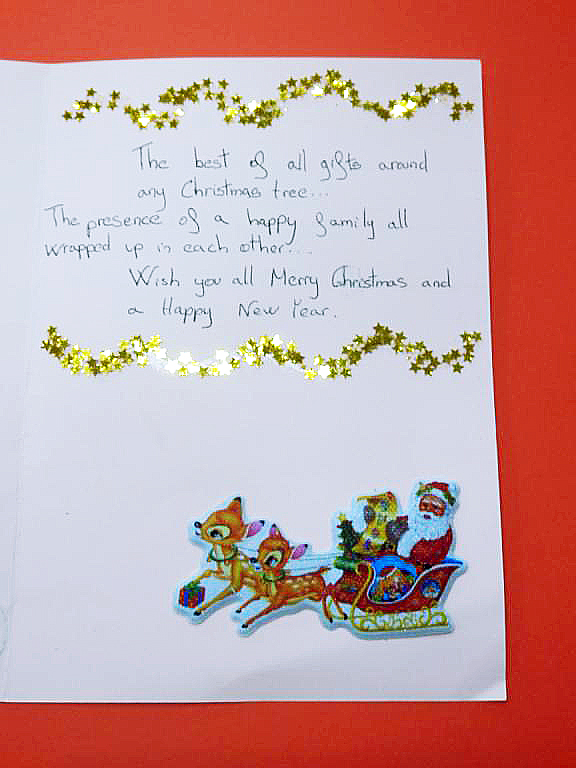 The best of all gifts around
any Christmas tree...
The presence of a happy family all
wrapped up in each other...
Wish you all Merry Christmas and
a Happy New Year.